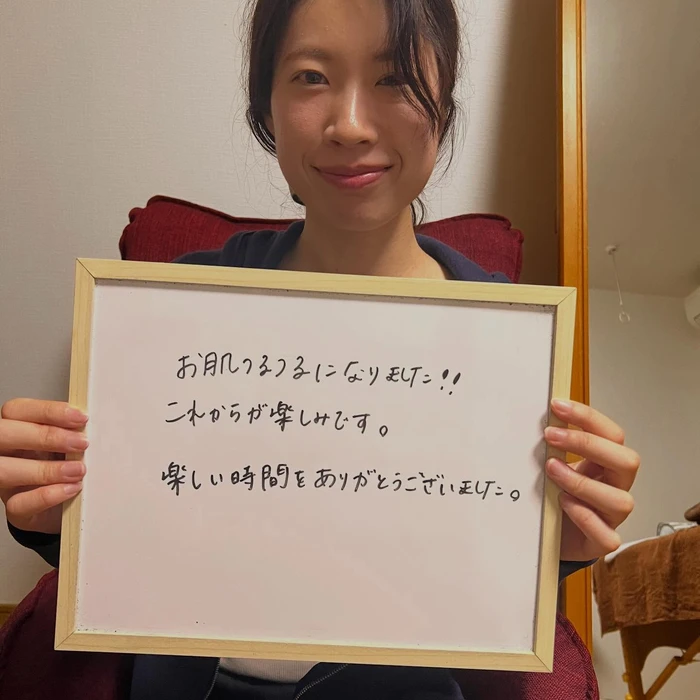 お肌つるつるになりました!!
これからが楽しみです。
楽しい時間をありがとうございました。